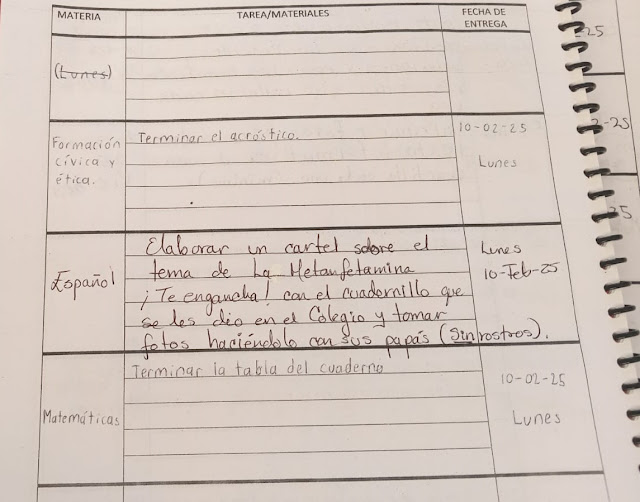 MATERIA
TAREA/MATERIALES
FECHA DE
ENTREGA
(Lunes)
Formación
cívica y
ética.
Terminar el acróstico.
10-02-25
Lunes
Español
Elaborar un cartel sobre el
tema de La Metanfetamina
¡Te engancha! con el cuadernillo que
se les dio en el Colegio y tomar
fotos haciéndolo con sus papás (Sin rostros).
Lunes
10-Feb-25
Matemáticas
Terminar la tabla del cuaderno
10-02-25
Lunes
-25
2-25
25